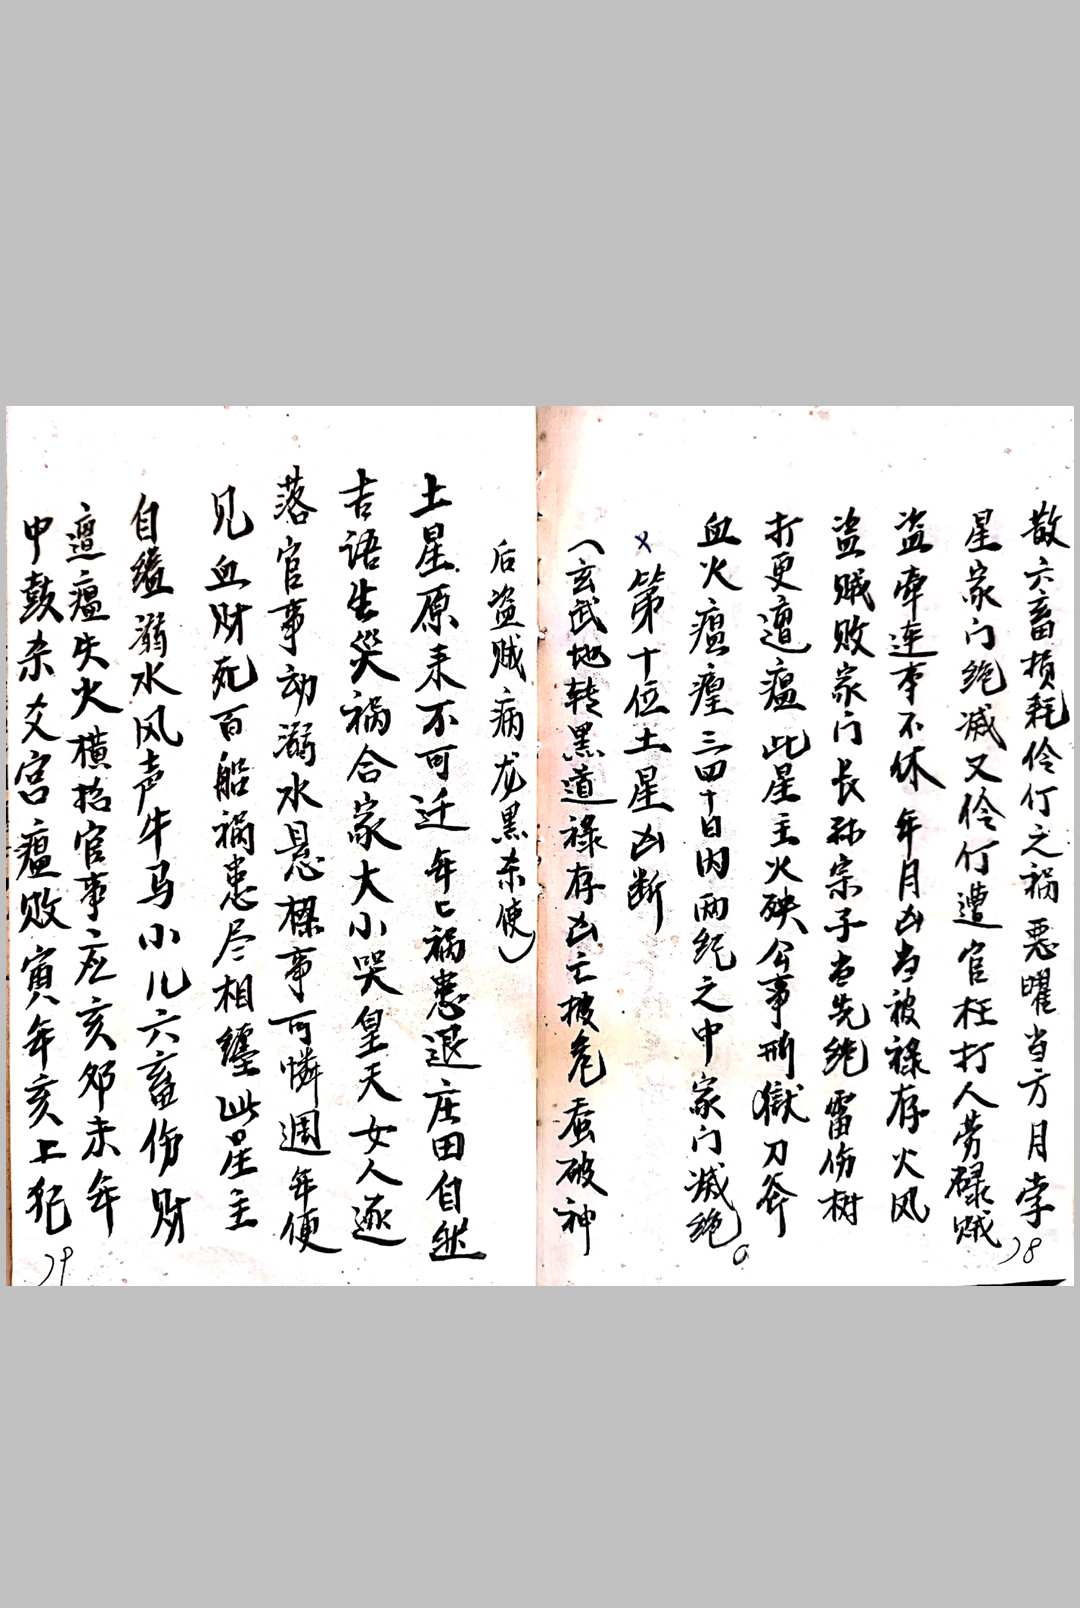 散六畜损耗伶仃之祸恶曜当方月孛
星家门绝减又伶仃遭官枉打人劳碌贼
盗牵连事不休年月凶当被禄存火风
盗贼败家门长孙宗子当先绝雷伤树
打更遭瘟此星主火殃公事刑獄刀斧
血火瘟瘟三四十日内两纪之中家门滅绝。
x第十位土星凶断
(玄武地转黑道禄存凶亡披危蚕破神
28
后盗贼病龙黑杀使)
土星原来不可迁年々祸患退庄田自然
吉语生災祸合家大小哭皇天女人逐
落官事动溺水悬樑事可憐週年便
见血财死百船祸患尽相纏此星主
自缢溺水风声牛马小儿六畜伤财
遭瘟失火横招官事应亥卯未年
申鼓杀爻宫瘟败寅年亥上犯
29